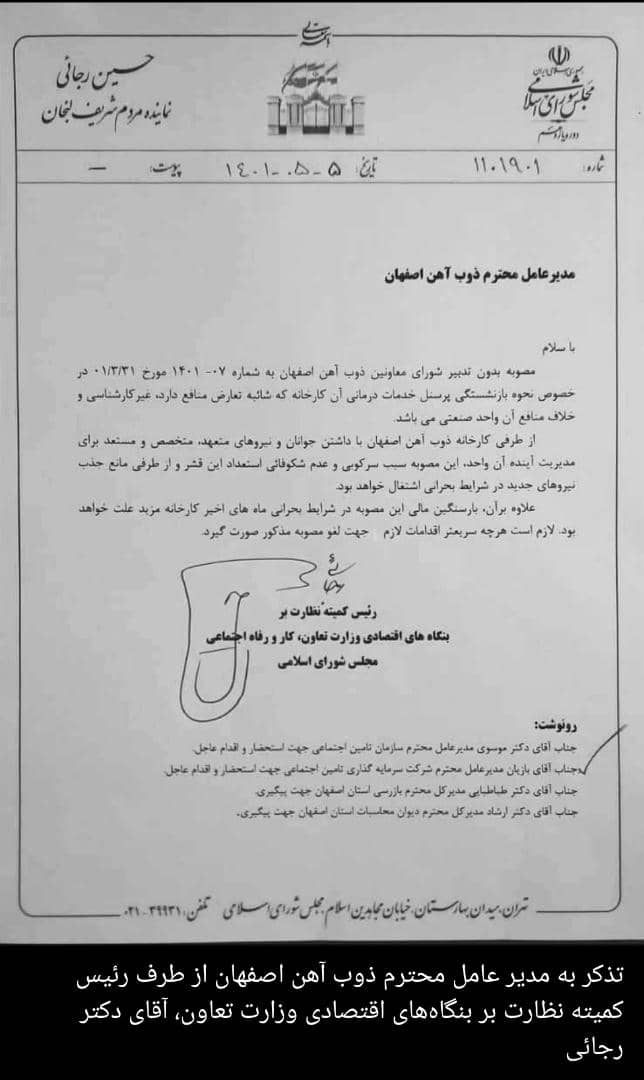 بسمه تعالی
جمهوری اسلامی ایران
مجلس شورای اسلامی
دوره یازدهم
حسین رجائی
نماینده مردم شریف لنجان
شماره: ۱۱۰۱۹۰۱
تاریخ: ۵-۰۵-۱۴۰۱
پیوست: —
مدیرعامل محترم ذوب آهن اصفهان
با سلام
مصوبه بدون تدبیر شورای معاونین ذوب آهن اصفهان به شماره ۰۷- ۱۴۰۱ مورخ ۰۱/۳/۳۱ در
خصوص نحوه بازنشستگی پرسنل خدمات درمانی آن کارخانه که شائبه تعارض منافع دارد، غیرکارشناسی و
خلاف منافع آن واحد صنعتی می باشد.
از طرفی کارخانه ذوب آهن اصفهان با داشتن جوانان و نیروهای متعهد، متخصص و مستعد برای
مدیریت آینده آن واحد، این مصوبه سبب سرکوبی و عدم شکوفائی استعداد این قشر و از طرفی مانع جذب
نیروهای جدید در شرایط بحرانی اشتغال خواهد بود.
علاوه برآن، بارسنگین مالی این مصوبه در شرایط بحرانی ماه های اخیر کارخانه مزید علت خواهد
بود. لازم است هرچه سریعتر اقدامات لازم جهت لغو مصوبه مذکور صورت گیرد.
رجائی
رئیس کمیته نظارت بر
بنگاه های اقتصادی وزارت تعاون، کار و رفاه اجتماعی
مجلس شورای اسلامی
رونوشت:
جناب آقای دکتر موسوی مدیرعامل محترم سازمان تامین اجتماعی جهت استحضار و اقدام عاجل.
جناب آقای بازیان مدیرعامل محترم شرکت سرمایه گذاری تامین اجتماعی جهت استحضار و اقدام عاجل.
جناب آقای دکتر طباطبایی مدیرکل محترم بازرسی استان اصفهان جهت پیگیری.
جناب آقای دکتر ارشاد مدیرکل محترم دیوان محاسبات استان اصفهان جهت پیگیری.
تهران، میدان بهارستان، خیابان مجاهدین اسلام، مجلس شورای اسلامی تلفن: ۳۹۹۳۱-۰۲۱
تذکر به مدیر عامل محترم ذوب آهن اصفهان از طرف رئیس
کمیته نظارت بر بنگاه‌های اقتصادی وزارت تعاون، آقای دکتر
رجائی